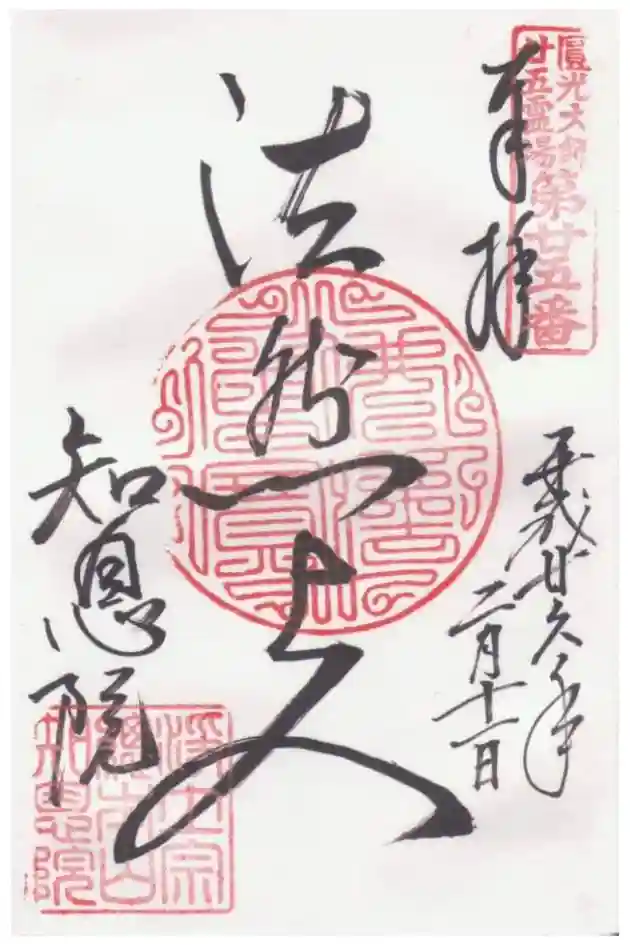 圓光大師
廿五霊場
第廿五番
奉拝
平成廿六年
二月十一日
法然上人
知恩院
浄土宗
總本山
知恩院